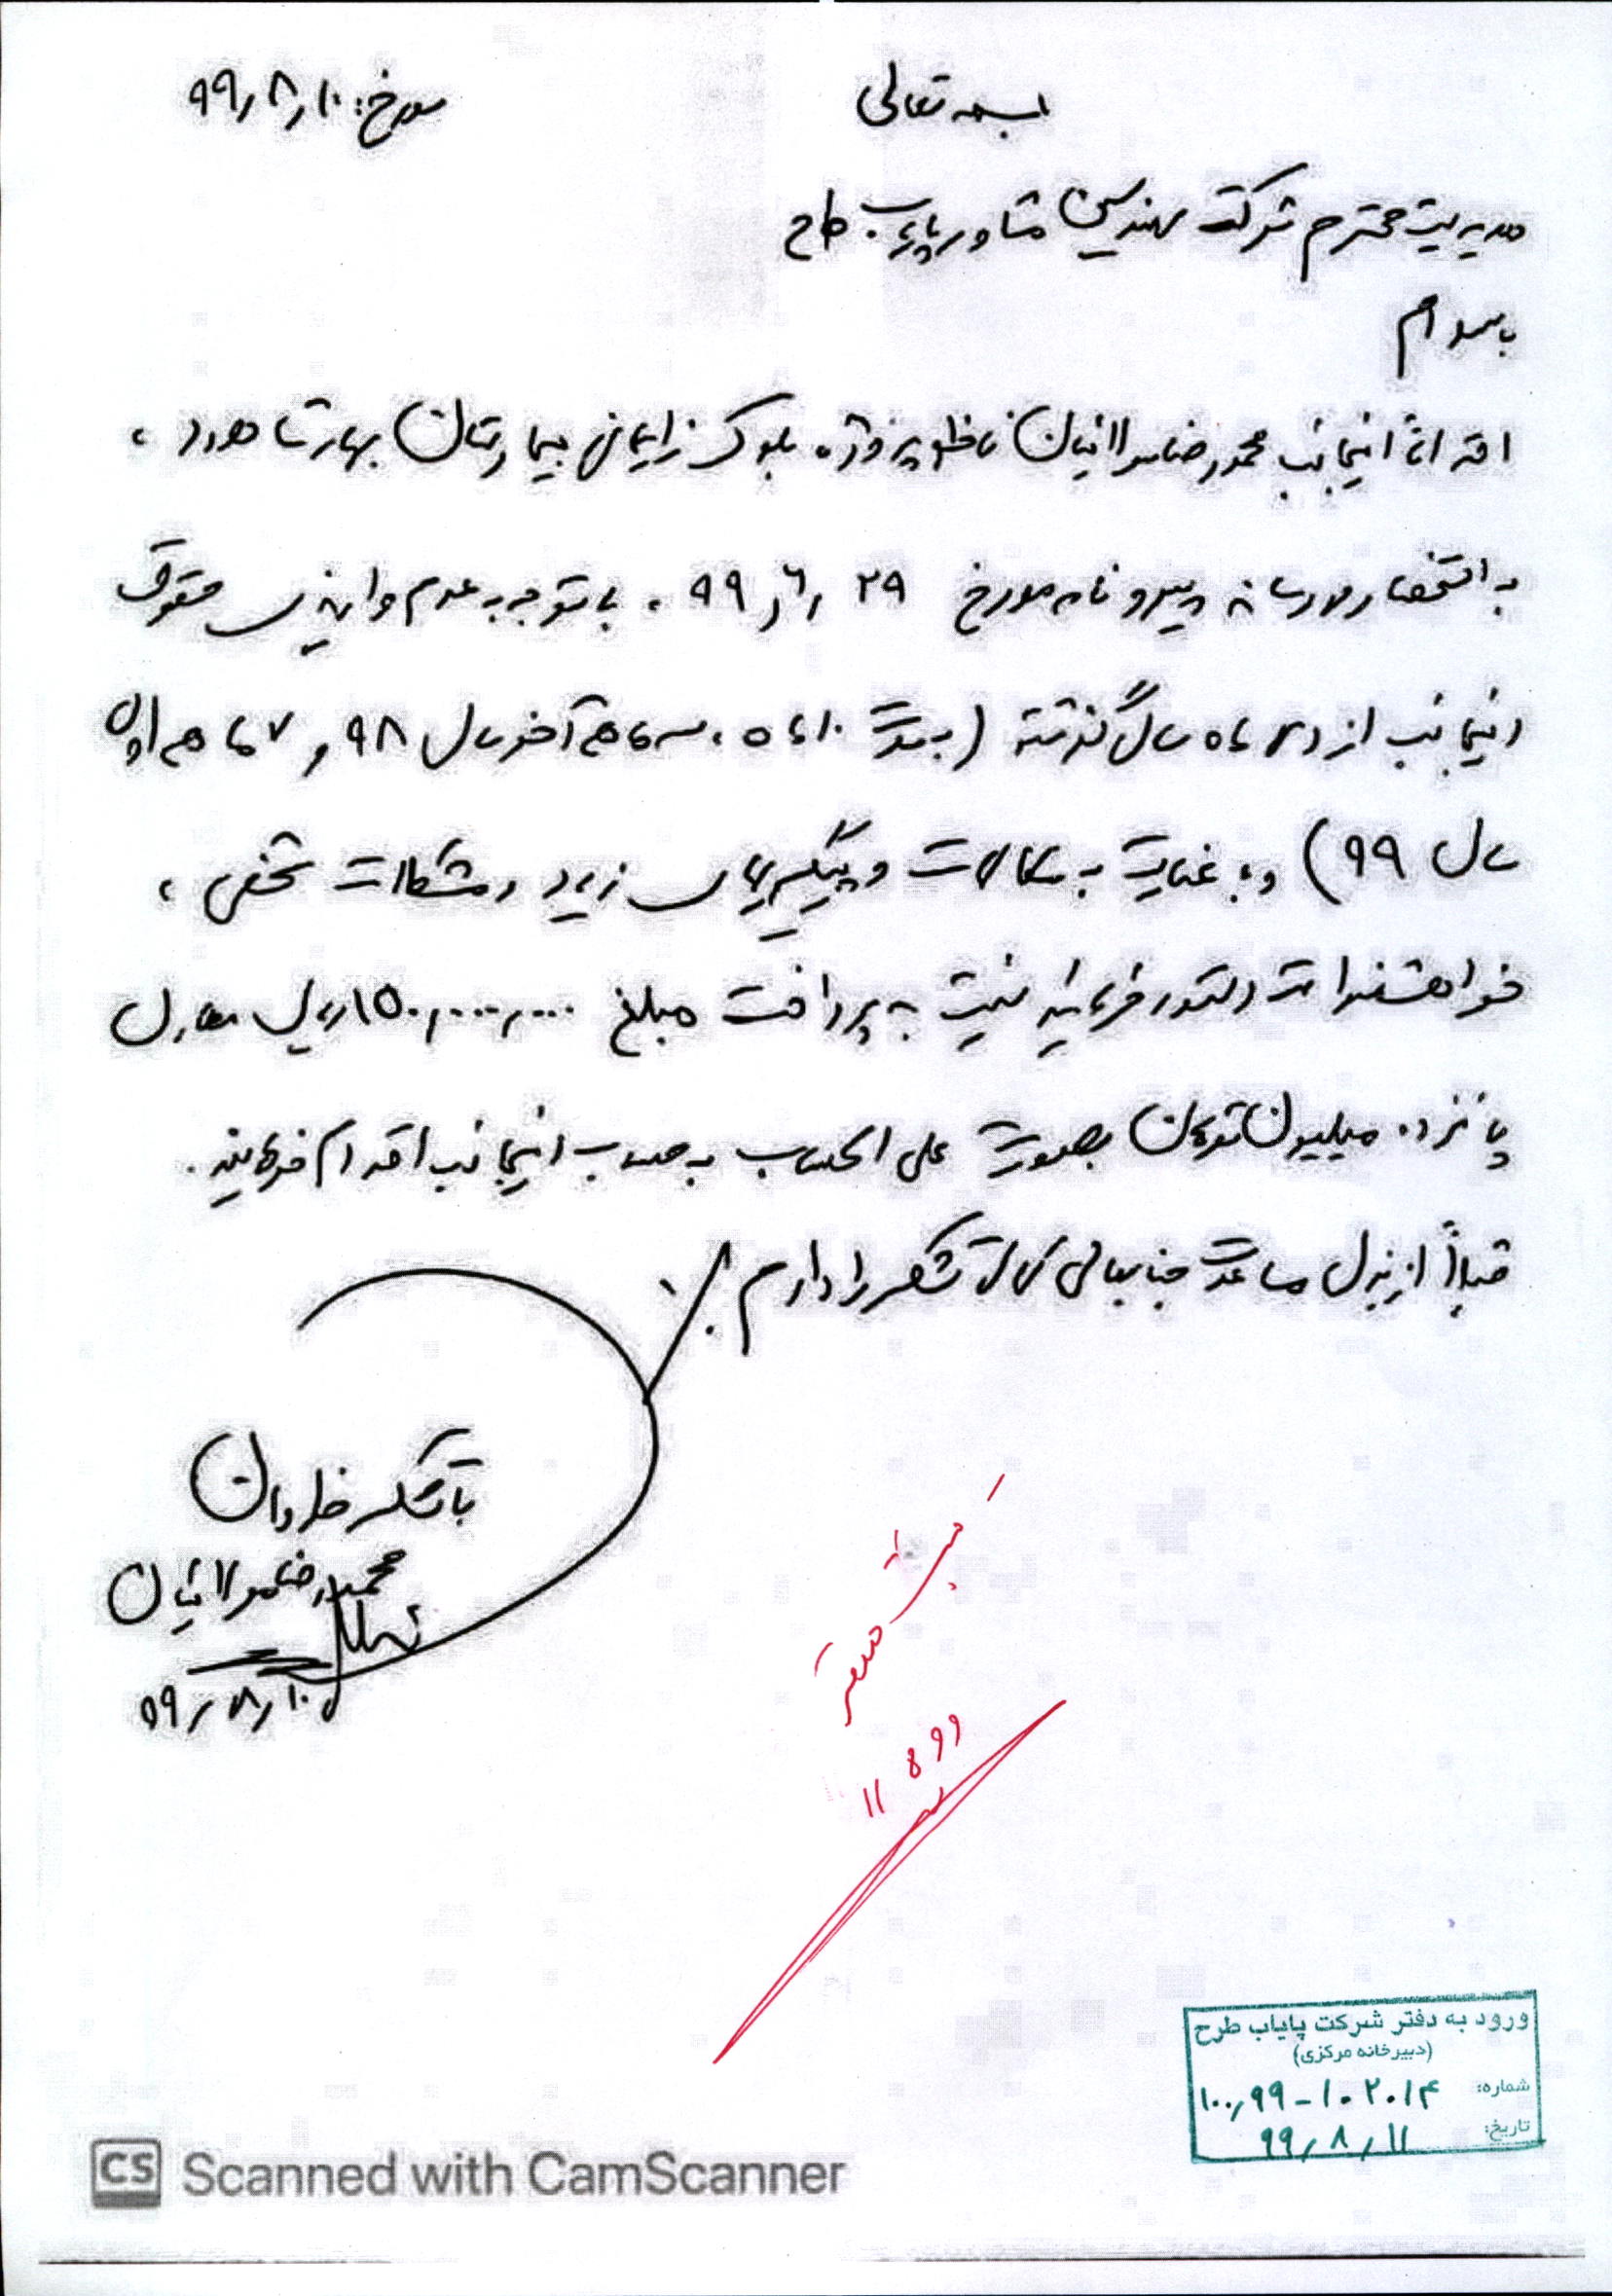 بسمه تعالی
مورخ: ۹۹/۸/۱۰
مدیریت محترم شرکت مهندسین مشاور پایاب طرح
با سلام
احتراماً اینجانب محمدرضا مولائیان ناظر پروژه بلوک زایمان بیمارستان بهار شاهرود ،
به استحضار می‌رساند پیرو نامه مورخ ۹۹/۶/۲۹ ، با توجه به عدم واریزی حقوق
اینجانب از دی ماه سال گذشته (بمدت ۱۰ ماه ، سه ماهه آخر سال ۹۸ و ۷ ماهه اول
سال ۹۹) و با عنایت به مکالمات و پیگیریهای زیاد و مشکلات شخصی ،
خواهشمند است دستور فرمایید نسبت به پرداخت مبلغ ۱۵۰,۰۰۰,۰۰۰ ریال معادل
پانزده میلیون تومان بصورت علی الحساب به حساب اینجانب اقدام فرمایید .
قبلاً از بذل مساعدت جنابعالی کمال تشکر را دارم .
با تشکر فراوان
محمدرضا مولائیان
۹۹/۸/۱۰
۹۹ ۸ ۱۱
ورود به دفتر شرکت پایاب طرح
(دبیرخانه مرکزی)
شماره: ۱۰۰/۹۹-۱۰۲۰۱۴
تاریخ: ۹۹/۸/۱۱
CS Scanned with CamScanner